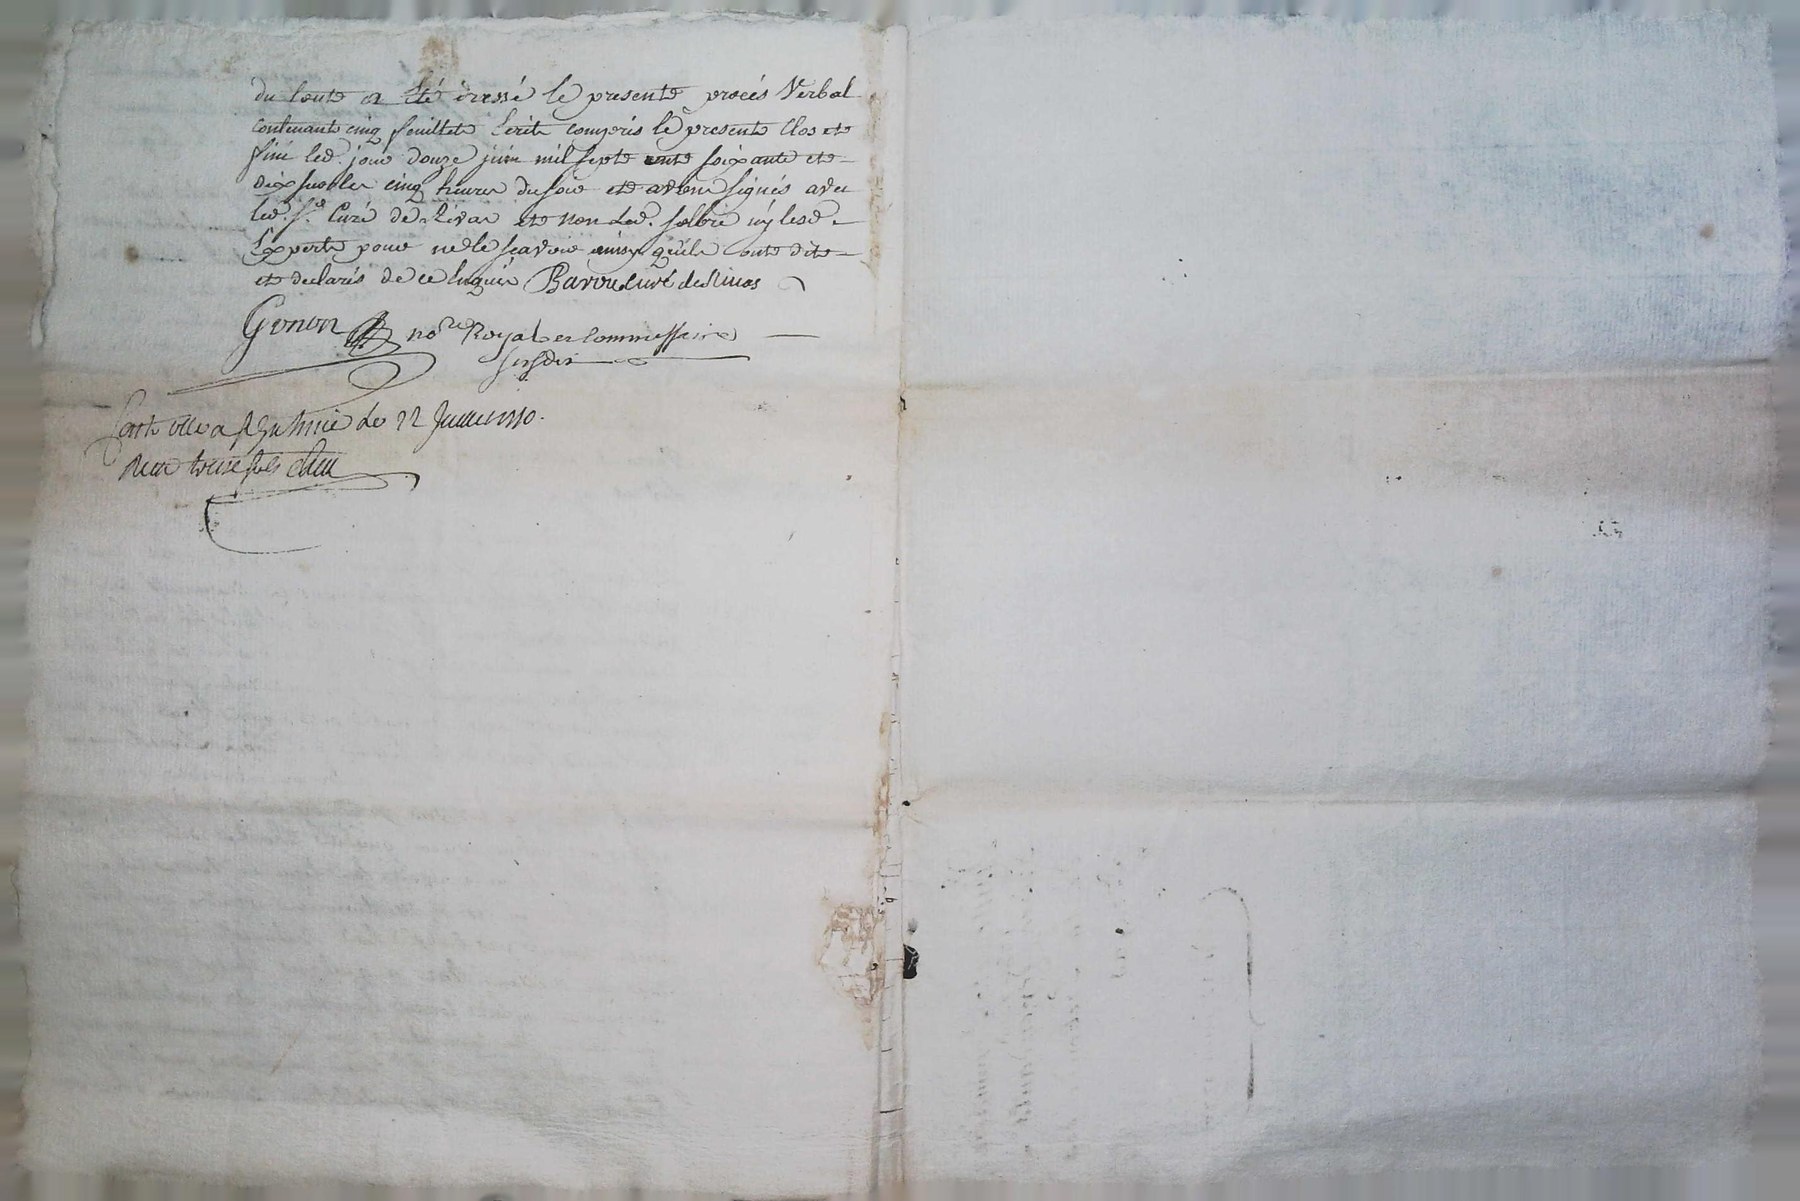 du tout a été dressé le present procés Verbal
contenant cinq feuillets Ecrits compris le present Clos et
finé led. jour douze juin mil sept cents soixante et
dix sur les cinq heures du soir et avons signés avec
led. Sr. Curé de Rivas et non led. ny lesd.
Experts pour ne le scavoir ainsy qu'ils ont dit
et declarés de ce Enquis Barou curé de Rivas
Gonon nore Royal et Commissaire
susdit
Controllé a le 22 Juin 1770.
Recu treize sols